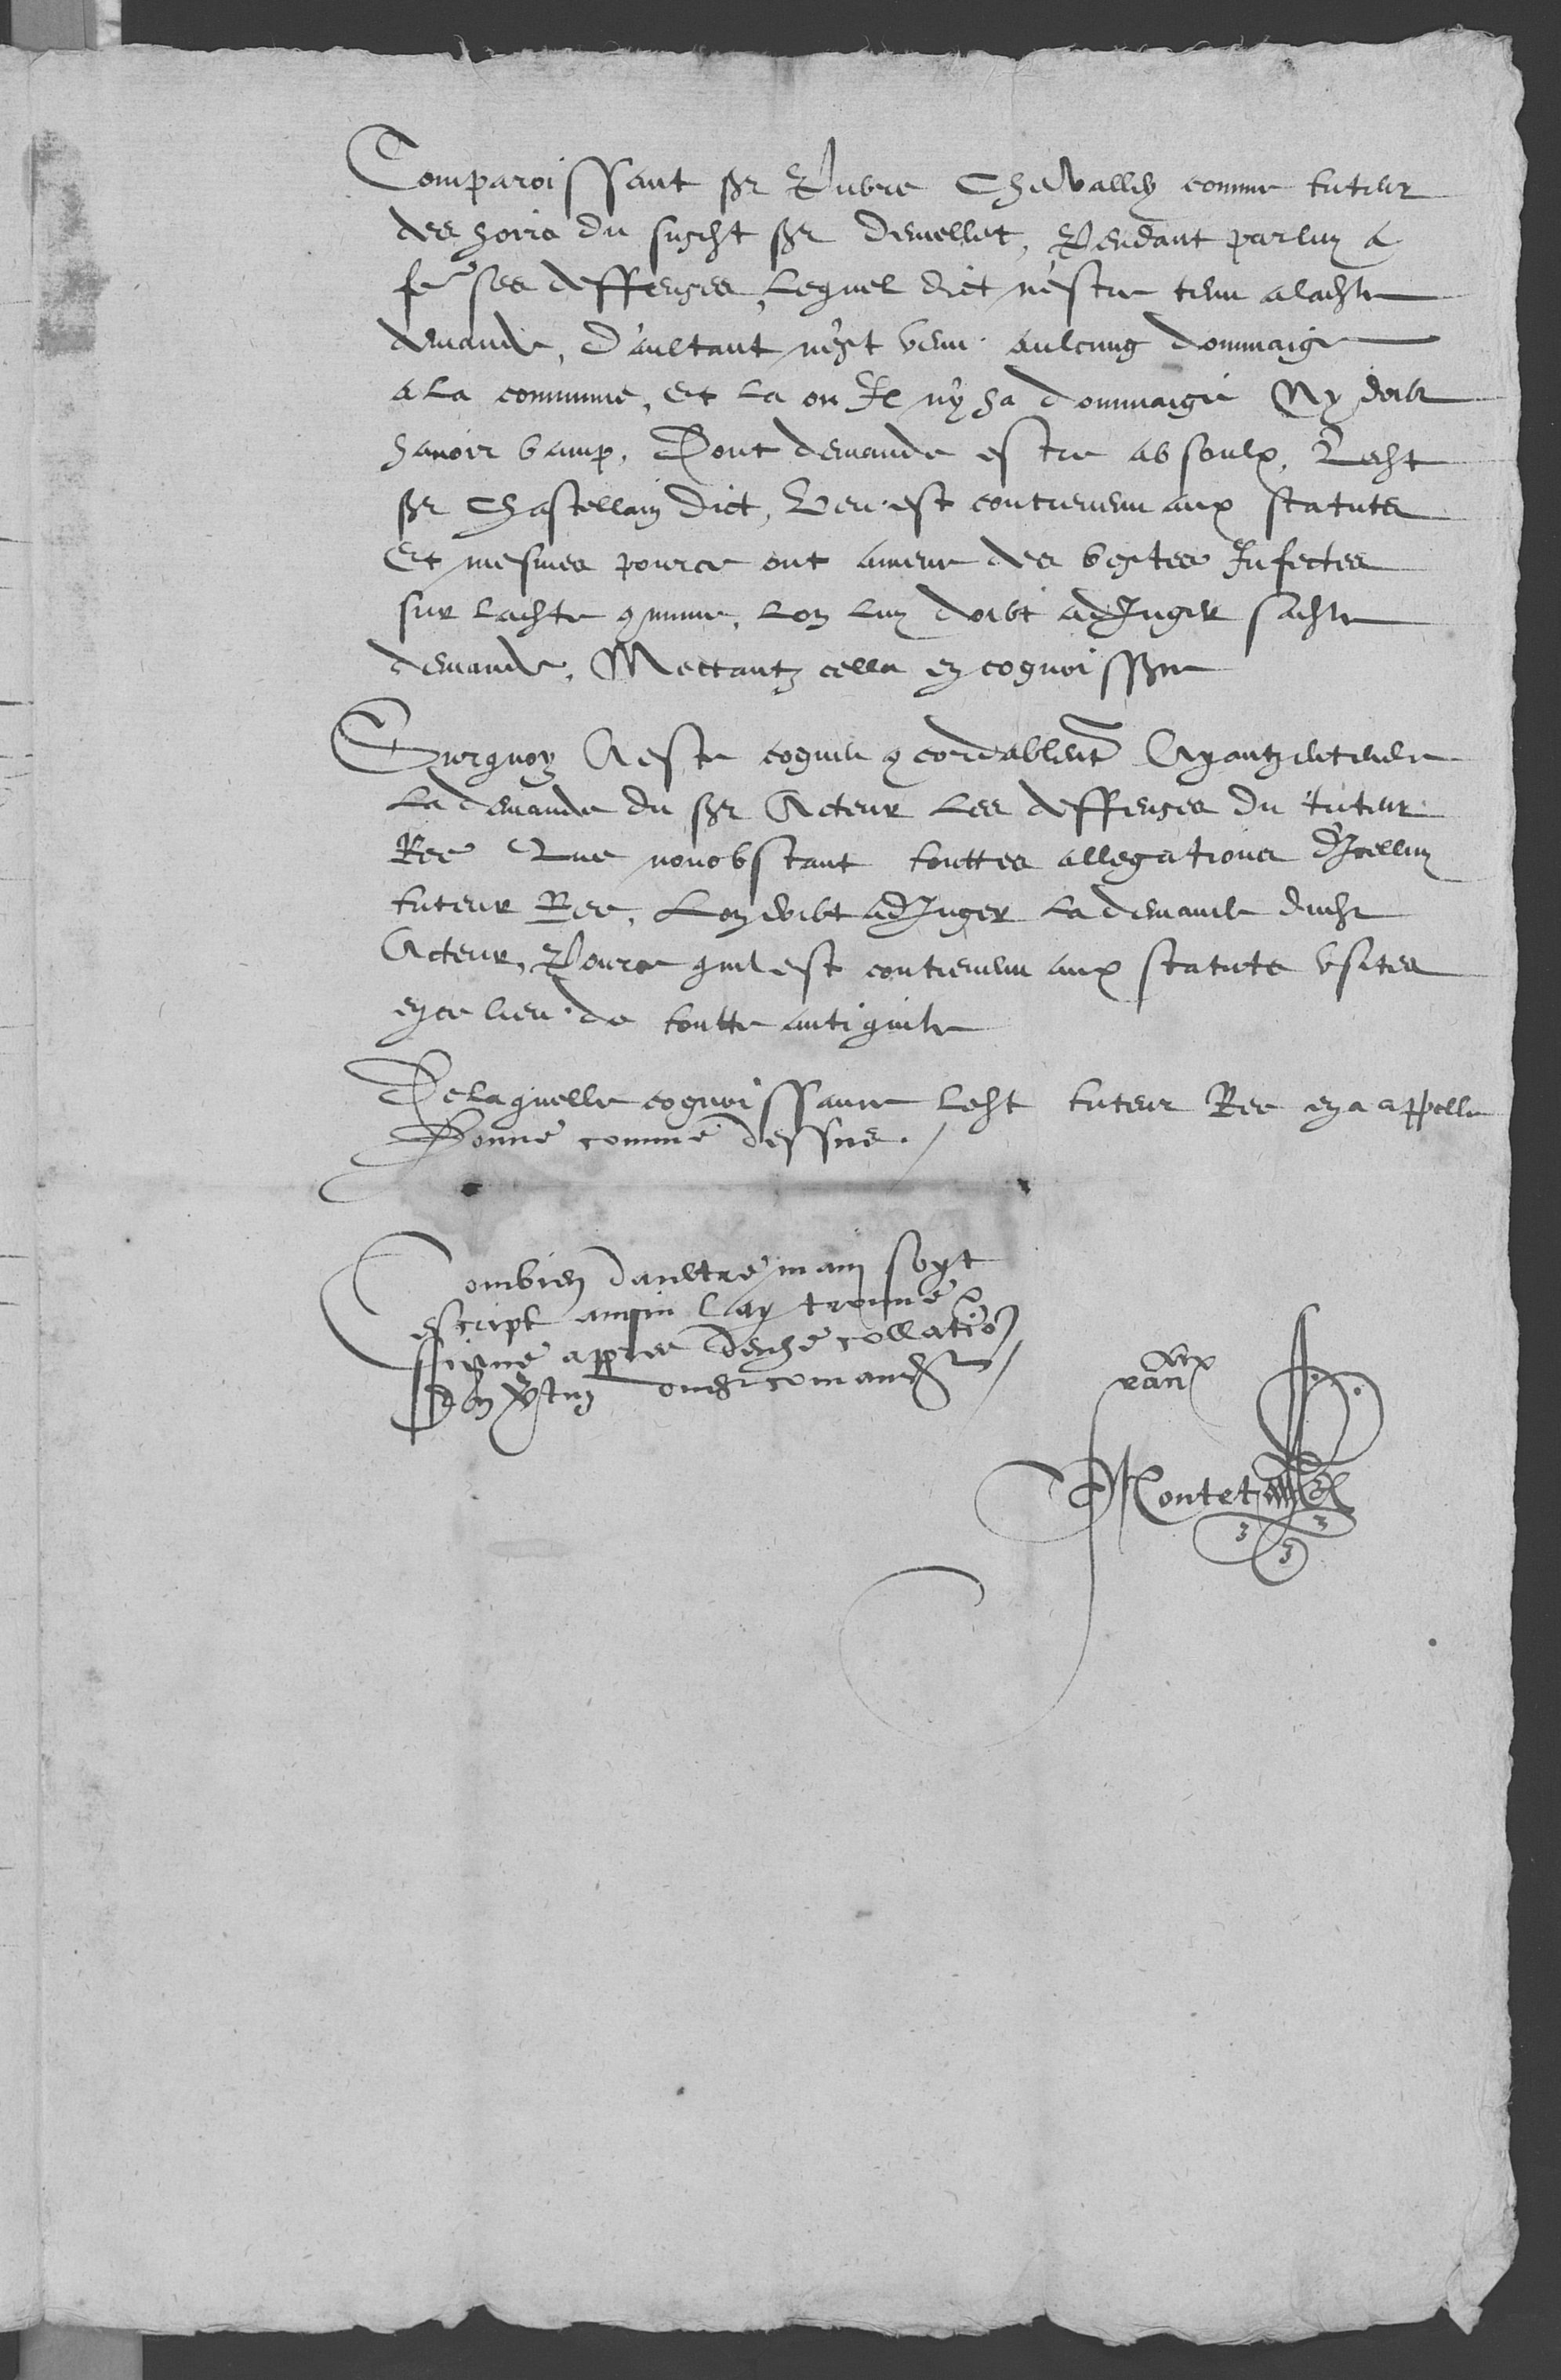 Comparoissant sr Pierre Chevalley comme tuteur
des hoirs du suscht sr Demellet, Pendant par luy a
fe ses deffenses, Lequel dict n'estre tenu a lachte
demande, D'aultant n'est venu aulcung dommaige
a la commune, Et la ou Il n'y ha dommaige Ny doibt
havoir bamp. Dont demande estre absoulx, Ledt
sr Chastellain Dict, Veu est contrevenu aux statuts
Et mesmes pource ont amene des bestes Infectes
sur ladte commune, Lon luy doibt adJuger sadte
demande, Mectantz cella en cognoissance
Surquoy A este cogneu concordablemt Ayantz entendu
La demande du sr Acteur Les deffenses du tuteur
Ree Que nonobstant touttes allegations d'Icelluy
tuteur Ree, Lon doibt adJuger La demande dudt
Acteur, Pource quil est contrevenu aux statuts usites
en ce lieu de toutte antiquite
De laquelle cognoissance Ledt tuteur Ree en a appelle
Donne comme dessus./
Combien daultre main soyt
escript ainsin lay trouvé
signé appres deuhe collation
Montet